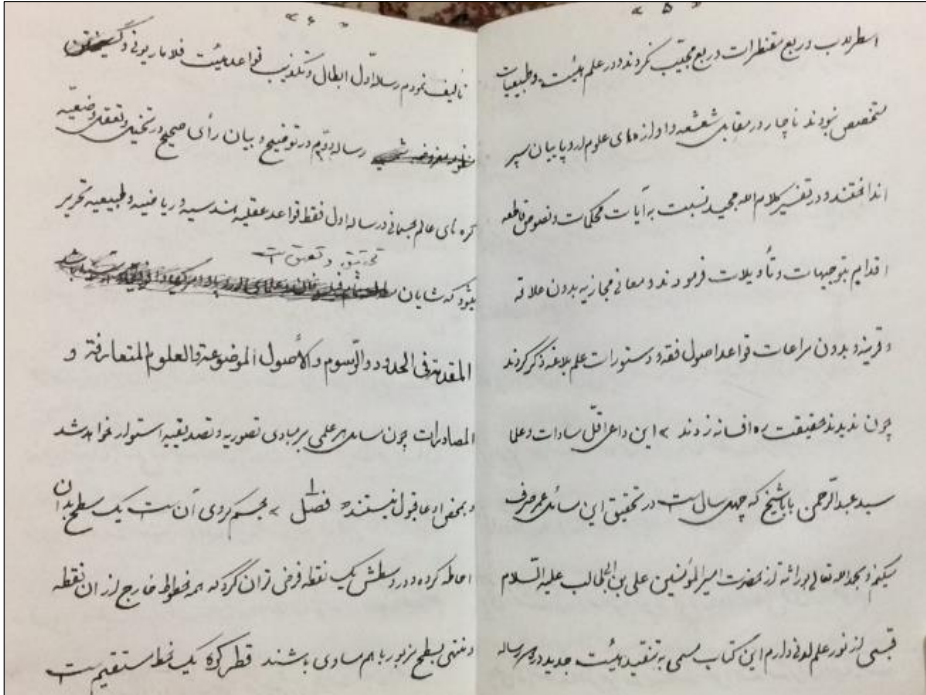 « ۵ »
اسطرلاب و ربع مقنطرات و ربع مجیب نکردند و در علم هیئت و طبیعیات
متخصص نبودند ناچار در مقابل شعشعه و اولز ه های علوم اروپاییان سپر
انداختند و در تفسیر کلام الله مجید نسبت به آیات محکمات و نصوص قاطعه
اقدام بتوجیهات و تأویلات فرمودند و معانی مجازیه بدون علاقه
و قرینه و بدون مراعات قواعد اصول فقه و دستورات علم بلاغه ذکر کردند
چون ندیدند حقیقت ره افسانه زدند » این داعی اقل سادات و علما
سید عبدالرحمن باباشیخ که چهل سال است در تحقیق این مسائل عمر صرف
میکنم و بحمدالله تعالی بوراثة از حضرت امیرالمؤمنین علی بن ابیطالب علیه السلام
قبسی از نور علم لدنی دارم این کتاب مسمی به تنقید هیئت جدید در رساله
« ۶ »
تألیف نمودم رساله اول ابطال و تکذیب قواعد هیئت فلاماریونی و
رساله دوم در توضیح و بیان رأی صحیح در تخیل و تعقل وضعیه
کره های عالم جسمانی در رساله اول فقط قواعد عقلیه هندسیه و ریاضیه و طبیعیه تحریر
تحقیق و تعمق است
میشود که شایان
المقدمة فی الحدود والرسوم والأصول الموضوعة والعلوم المتعارفة و
المصادرات چون مسایل هر علمی بر مبادی تصوریه و تصدیقیه استوار خواهد شد
و بمحض ادعا قبول نیستند فصل ۱ » مجسم کروی آن است یک سطح بدان
احاطه کرده و در وسطش یک نقطه فرض توان کرد که هر خطوط خارج از ان نقطه
و منتهی بسطح مزبور با هم مساوی باشند قطر کره یک خط مستقیم است